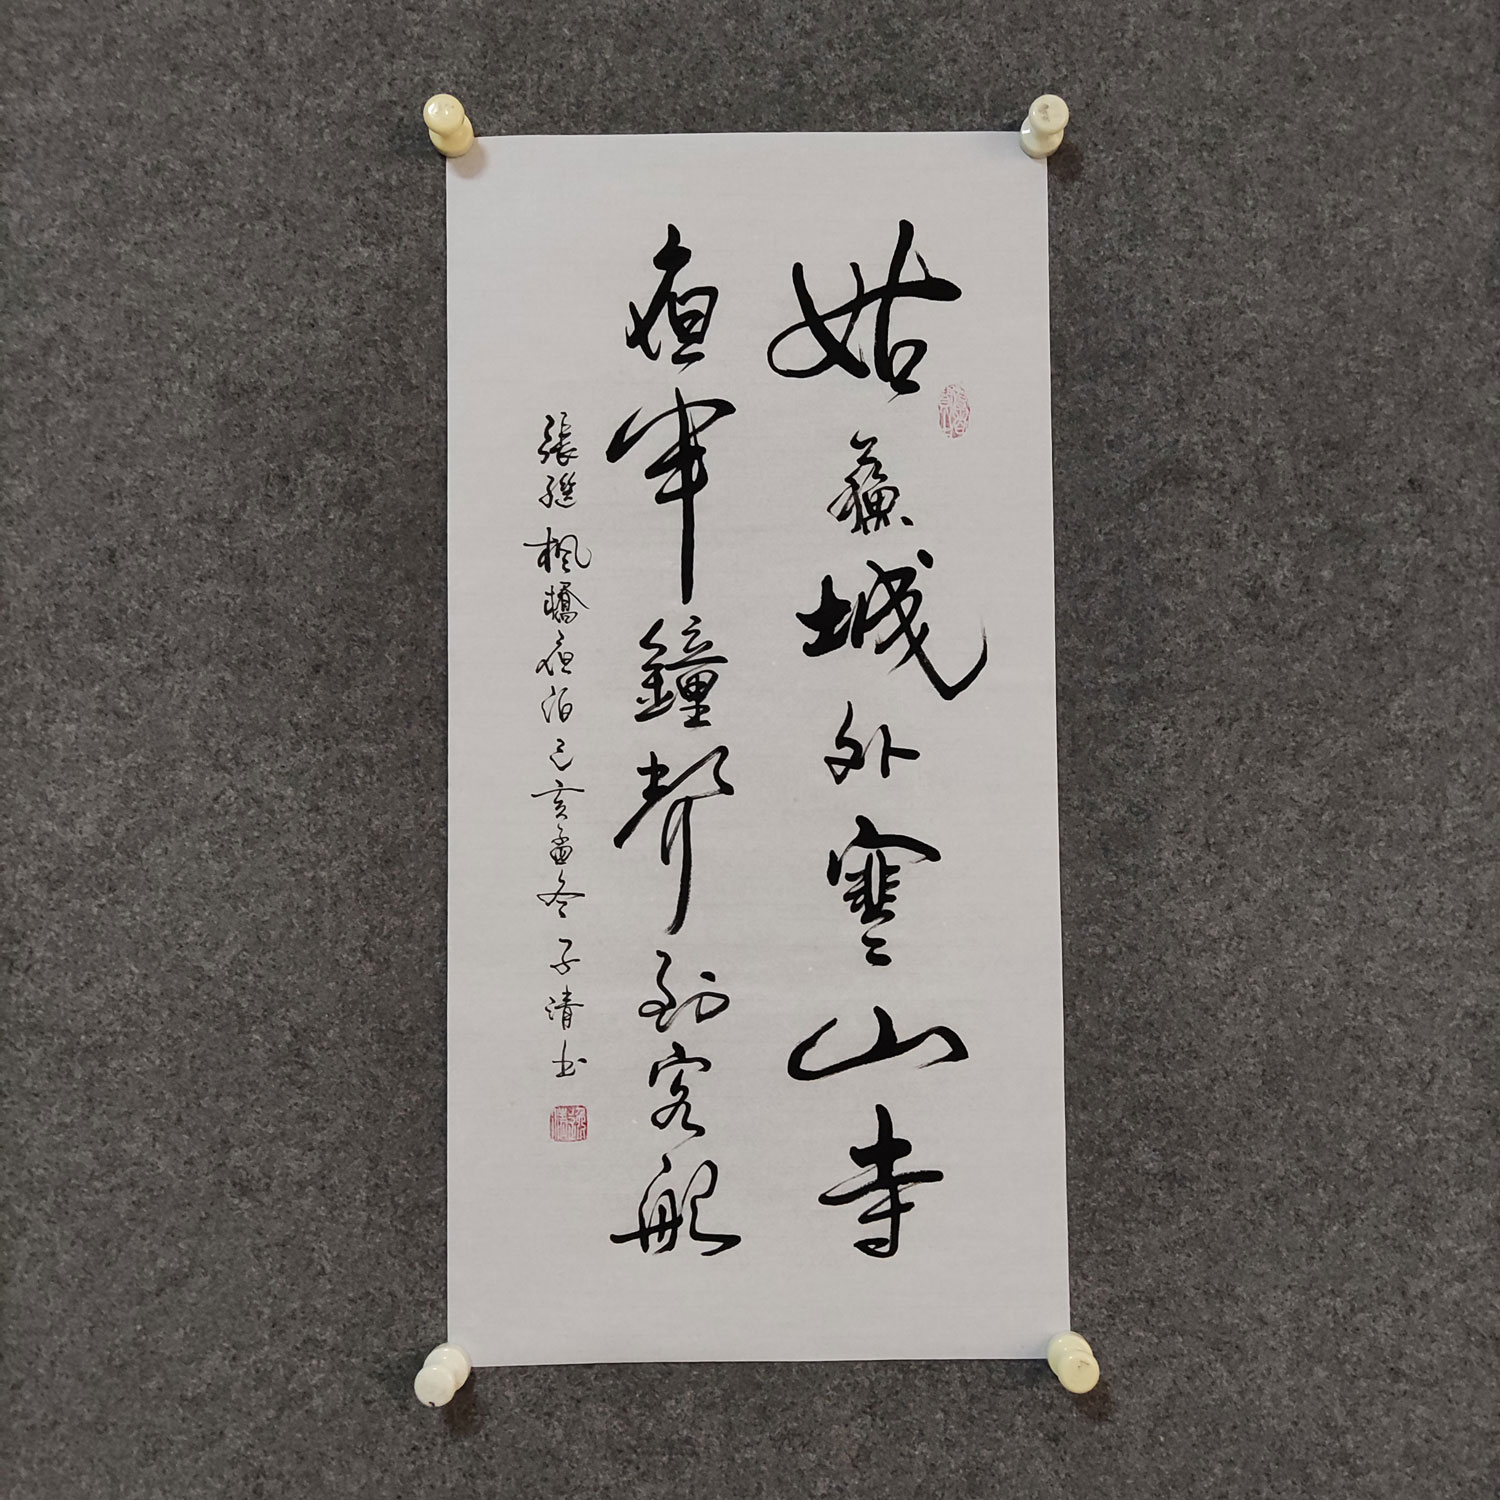 姑蘇城外寒山寺
夜半鐘聲到客船
張繼楓橋夜泊己亥孟冬子清书